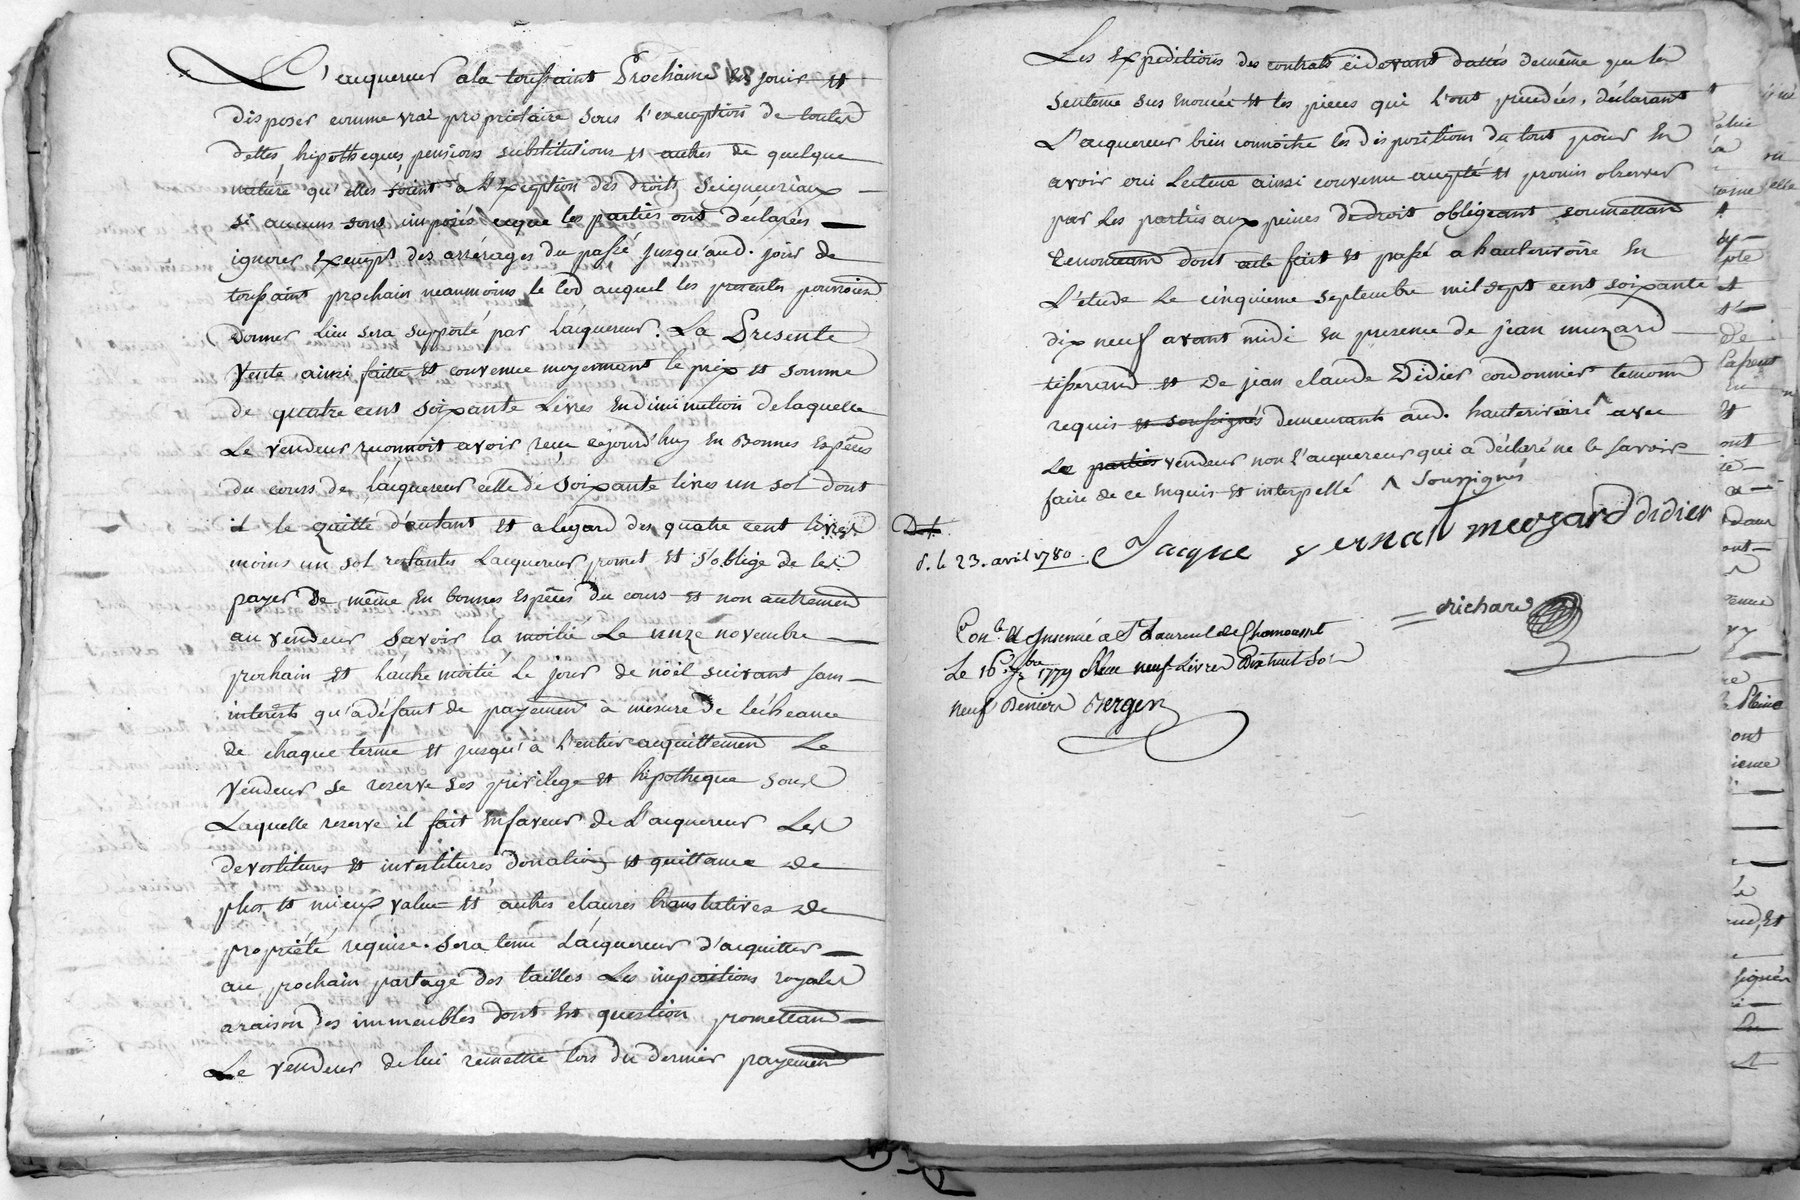 L'acquereur ala toussaint Prochaine en jouir et
disposer comme vrai propriétaire sous l'exemption de toutes
dettes, hipotheques, pensions substitutions et autres de quelque
nature qu'elles soient a l'Exception des droits Seigneuriaux
si aucuns sont imposés ceque les parties ont déclarées
ignorer Exempt des arrérages du passé jusqu'aud. jour de
toussaint prochain neanmoins le lod auquel les presentes pourroient
donner lieu sera supporté par l'acquereur. La Presente
Vente ainsi faitte et convenue moyennant le prix et somme
de quatre cent soixante Livres En diminution de laquelle
Le vendeur reconnoit avoir reçu cejourd'huy En Bonnes Espéces
du cours de l'acquereur celle de soixante livres un sol dont
il le quitte d'autant et a legard des quatre cent livres
moins un sol restantes Lacquereur promet et s'oblige de les
payer de même En bonnes Espêces du cours et non autrement
au vendeur savoir la moitié Le unze novembre
prochain et l'autre moitié Le jour de noël suivant sans
interêts qu'adéfaut de payement à mesure de l'écheance
de chaque terme et jusqu'à l'entier acquittement Le
vendeur se reserve ses privilege et hipotheque sous
Laquelle reserve il fait En faveur de L'acquereur Les
devestitures et investitures donation et quittance de
plus et mieux value et autres clauses translatives de
propriété requise. Sera tenu L'acquereur d'acquitter
au prochain partage des tailles Les impositions royales
araison des immeubles dont Est question promettant
Le vendeur de lui remettre lors du dernier payement
Les Expeditions des contrats cidevant dattés demême que la
sentence sus Enoncée et les pieces qui l'ont precedées, déclarant
L'acquereur bien connoitre les dispositions du tout pour En
avoir oui Lecture ainsi convenu accepté et promis observer
par Les parties aux peines de droit obligeant soumettant
Renonceant dont acte fait et passé a hauterivoire En
L'étude Le cinquieme septembre mil sept cent soixante
dix neuf avant midi En presence de jean muzard
tisserand et de jean claude Didier cordonnier temoins
requis et soussignés demeurants aud. hauterivoire ^ avec
Le parties vendeur non L'acquereur qui a déclaré ne le savoir
faire de ce Enquis et interpellé ^ soussignés
D.t.
d. le 23. avril 1780.
Jacque vernat muzard didier
richard
Con.lé et Insinué a St Laurent de Chamousset
Le 16e 7bre 1779 Reçu neuf Livres Dix huit Sols
neuf Deniers Bergeron